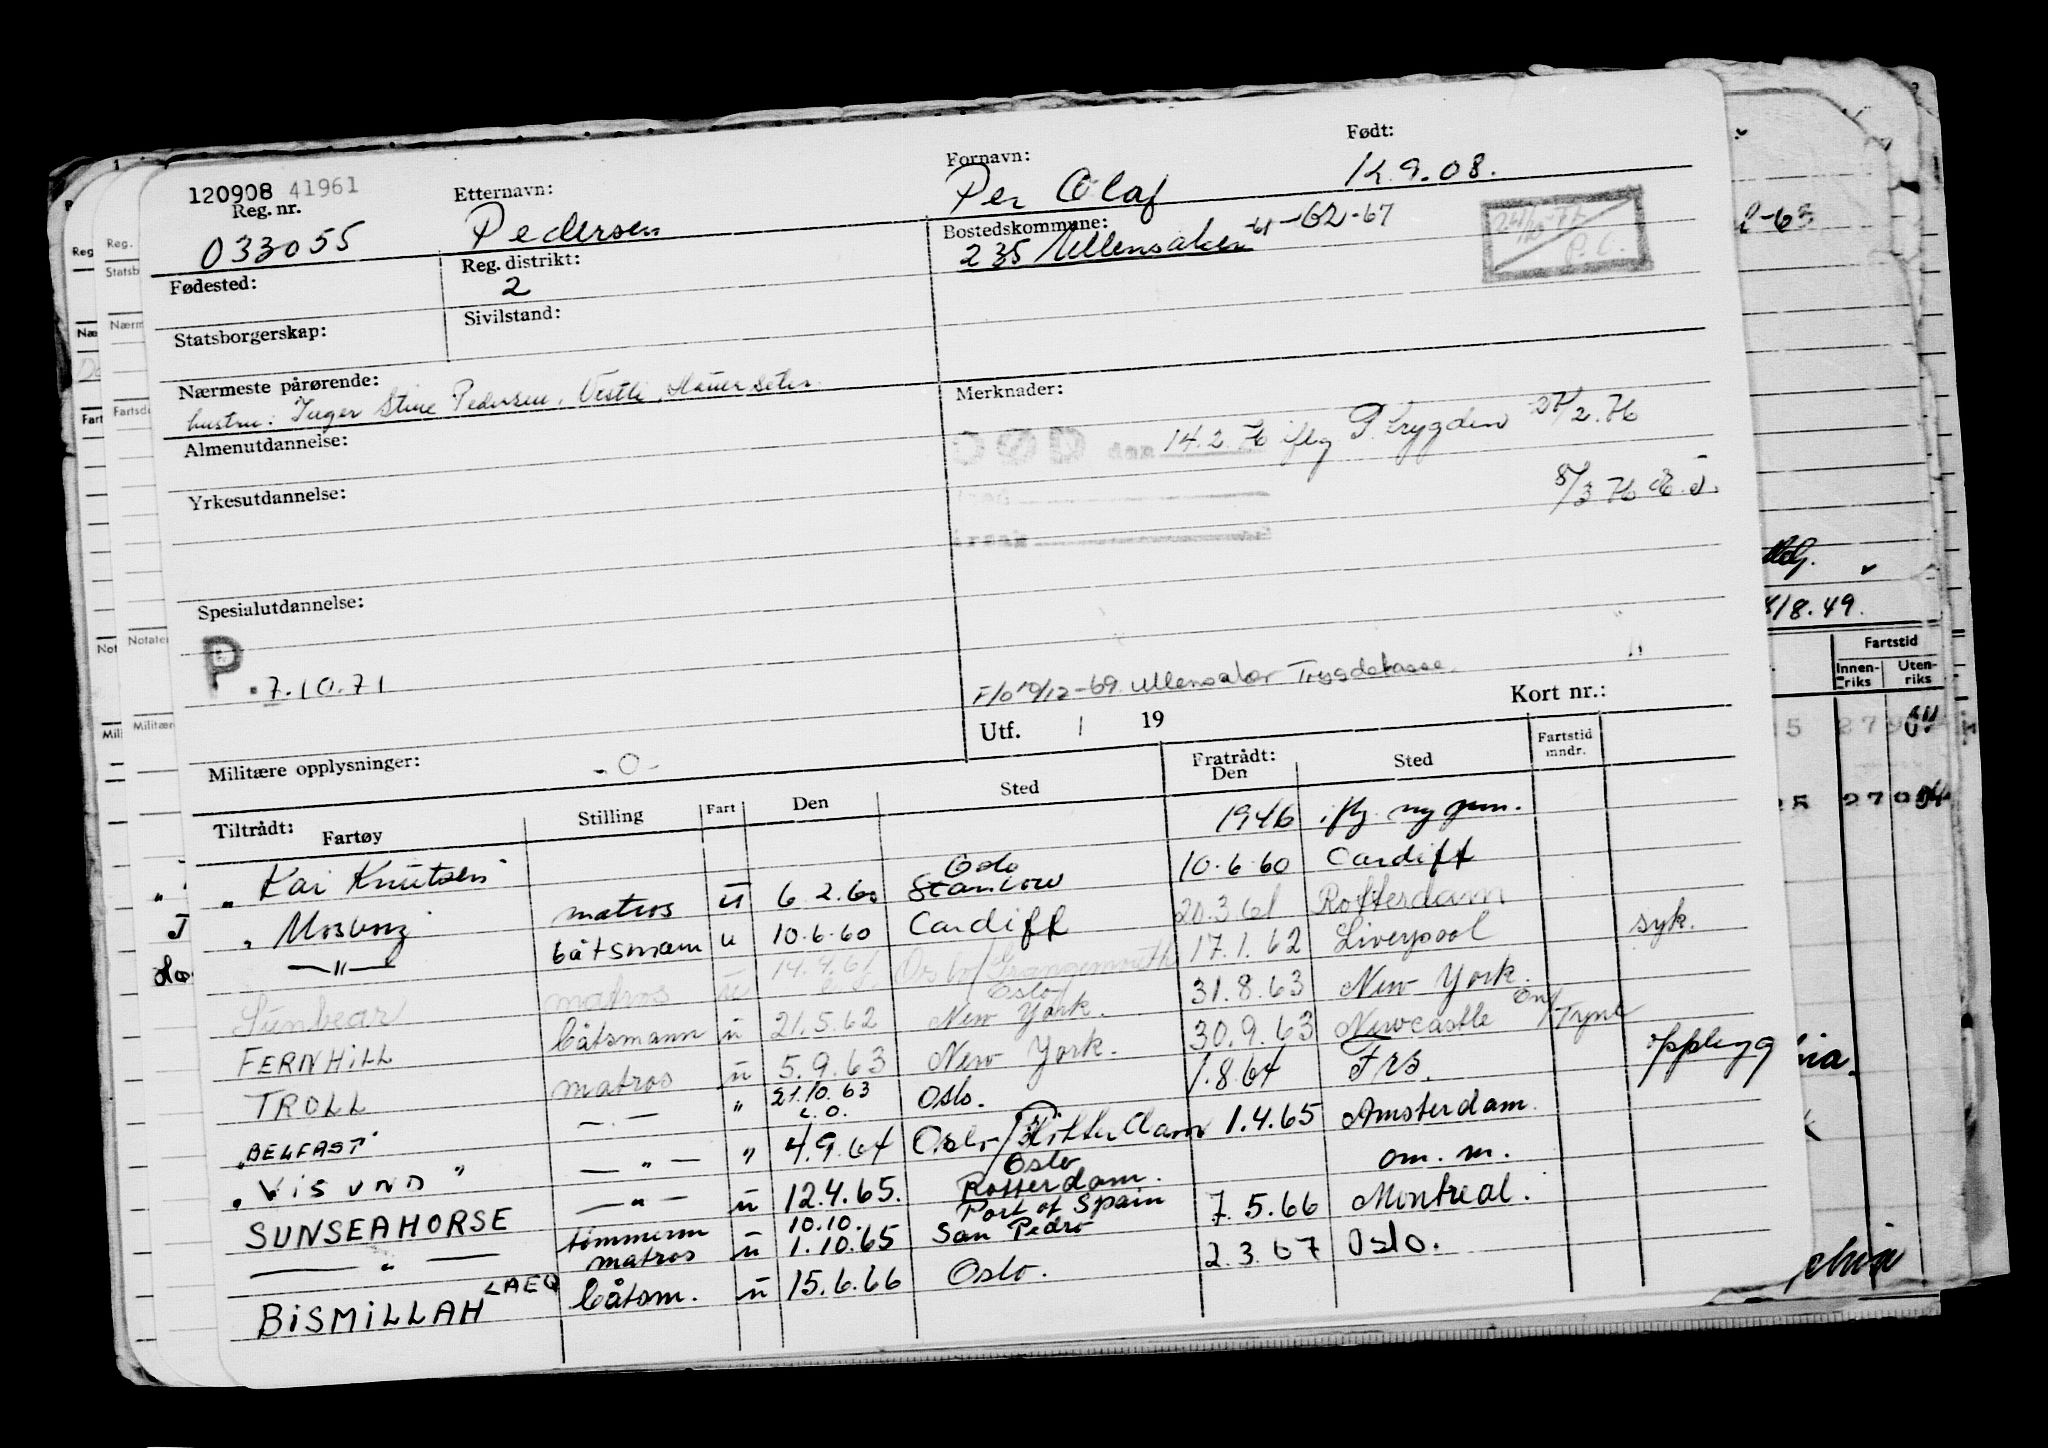 120908 41961
Reg. nr.
033055
Etternavn:
Pedersen
Fornavn:
Per Olaf
Født:
12.9.08.
Fødested:
Reg. distrikt:
2
Bostedskommune:
235 Ullensaker -61-62-67
Statsborgerskap:
Sivilstand:
Nærmeste pårørende:
hustru: Inger Stine Pedersen, Vestli,
Merknader:
Almenutdannelse:
DØD den 14.2.76 iflg P. trygden 27/2.76
Yrkesutdannelse:
8/3 76
årsak
Spesialutdannelse:
P.
7.10.71
F/0 19/12-69 Ullensaker Trygdekasse.
Utf. / 19
Kort nr.:
Militære opplysninger:
- 0 -
Tiltrådt:
Fartøy
Stilling
Fart
Den
Sted
Fratrådt:
Den
Sted
Fartstid
mndr.
1946 iflg. ny mm.
"Kai Knutsen" matros u 6.2.60 Oslo 10.6.60 Cardiff
" Mosborg båtsmann u 10.6.60 Cardiff 20.3.61 Rotterdam
— " —
Sunbear matros u 14.9.61 Oslo/Grangemouth 17.1.62 Liverpool syk.
FERNHILL båtsmann u 21.5.62 Oslo New York. 31.8.63 New York.
TROLL matros u 5.9.63 New York. 30.9.63 Newcastle on/Tyne
"BELFAST" — " — " 21.10.63 Oslo. 1.8.64 Frs. opplegg
"VISUND" — " — " 4.9.64 Oslo/Rotterdam 1.4.65 Amsterdam.
SUNSEAHORSE — " — u 12.4.65. Oslo Rotterdam. om. m.
— " — tømmerm matros u 10.10. 1.10.65 Port of Spain San Pedro 7.5.66 Montreal.
BISMILLAH LAEQ båtsm. u 15.6.66 Oslo. 2.3.67 Oslo.
Fartstid
Innen-
riks
Uten-
riks